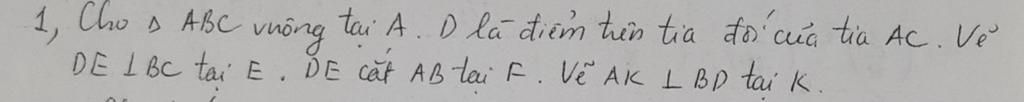 1, Cho Δ ABC vuông tại A. D là điểm trên tia đối của tia AC. Vẽ
DE ⊥ BC tại E. DE cắt AB tại F. Vẽ AK ⊥ BD tại K.